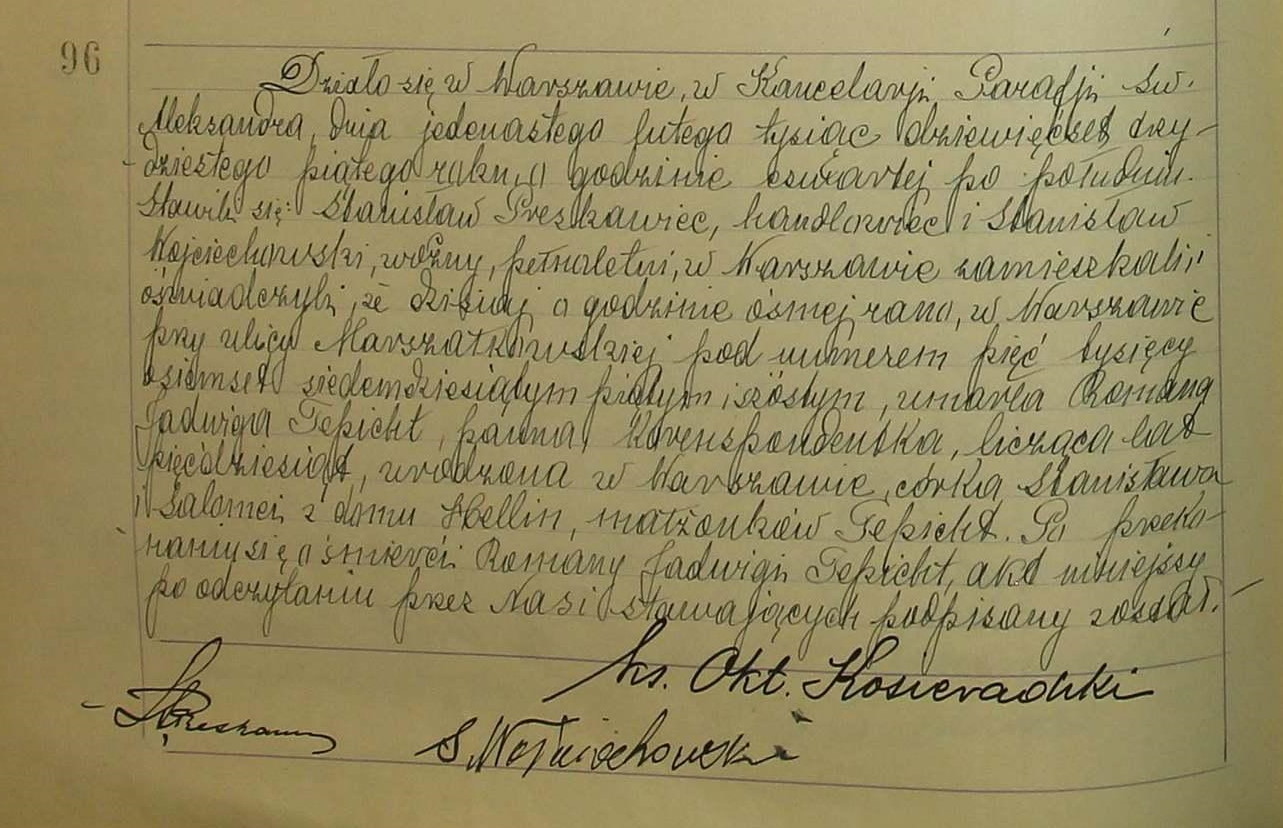 96
Działo się w Warszawie, w Kancelarji Parafji św.
Aleksandra, dnia jedenastego lutego tysiąc dziewięćset trzy-
dziestego piątego roku, o godzinie czwartej po południu.
Stawili się: Stanisław Preskawiec, handlowiec i Stanisław
Wojciechowski, woźny, pełnoletni, w Warszawie zamieszkali i
oświadczyli, że dzisiaj o godzinie ósmej rano, w Warszawie
przy ulicy Marszałkowskiej pod numerem pięć tysięcy
osiemset siedemdziesiątym piątym i szóstym, umarła Romana
Jadwiga Tepicht, panna, korespondentka, licząca lat
pięćdziesiąt, urodzona w Warszawie, córka Stanisława
i Salomei z domu Hellin, małżonków Tepicht. Po przeko-
naniu się o śmierci Romany Jadwigi Tepicht, akt niniejszy
po odczytaniu przez Nas i stawających podpisany został.
ks. Okt. Kosieradzki
S. Wojciechowski